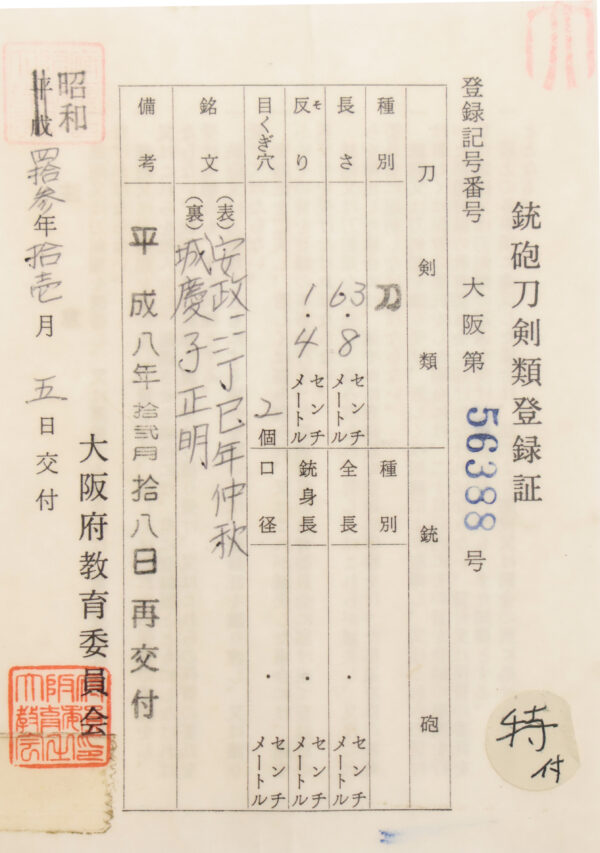 銃砲刀剣類登録証
登録記号番号 大阪第 56388 号
刀剣類
種別 刀
長さ 63.8 センチメートル
反り ソリ 1.4 センチメートル
目くぎ穴 2 個
銃砲
種別
全長 ・ センチメートル
銃身長 ・ センチメートル
口径 ・ センチメートル
銘文
(表) 安政二二丁巳年仲秋
(裏) 城慶子正明
備考 平成八年拾弐月拾八日再交付
大阪府教育委員会
昭和
平成 四拾参年拾壱月五日交付
特付